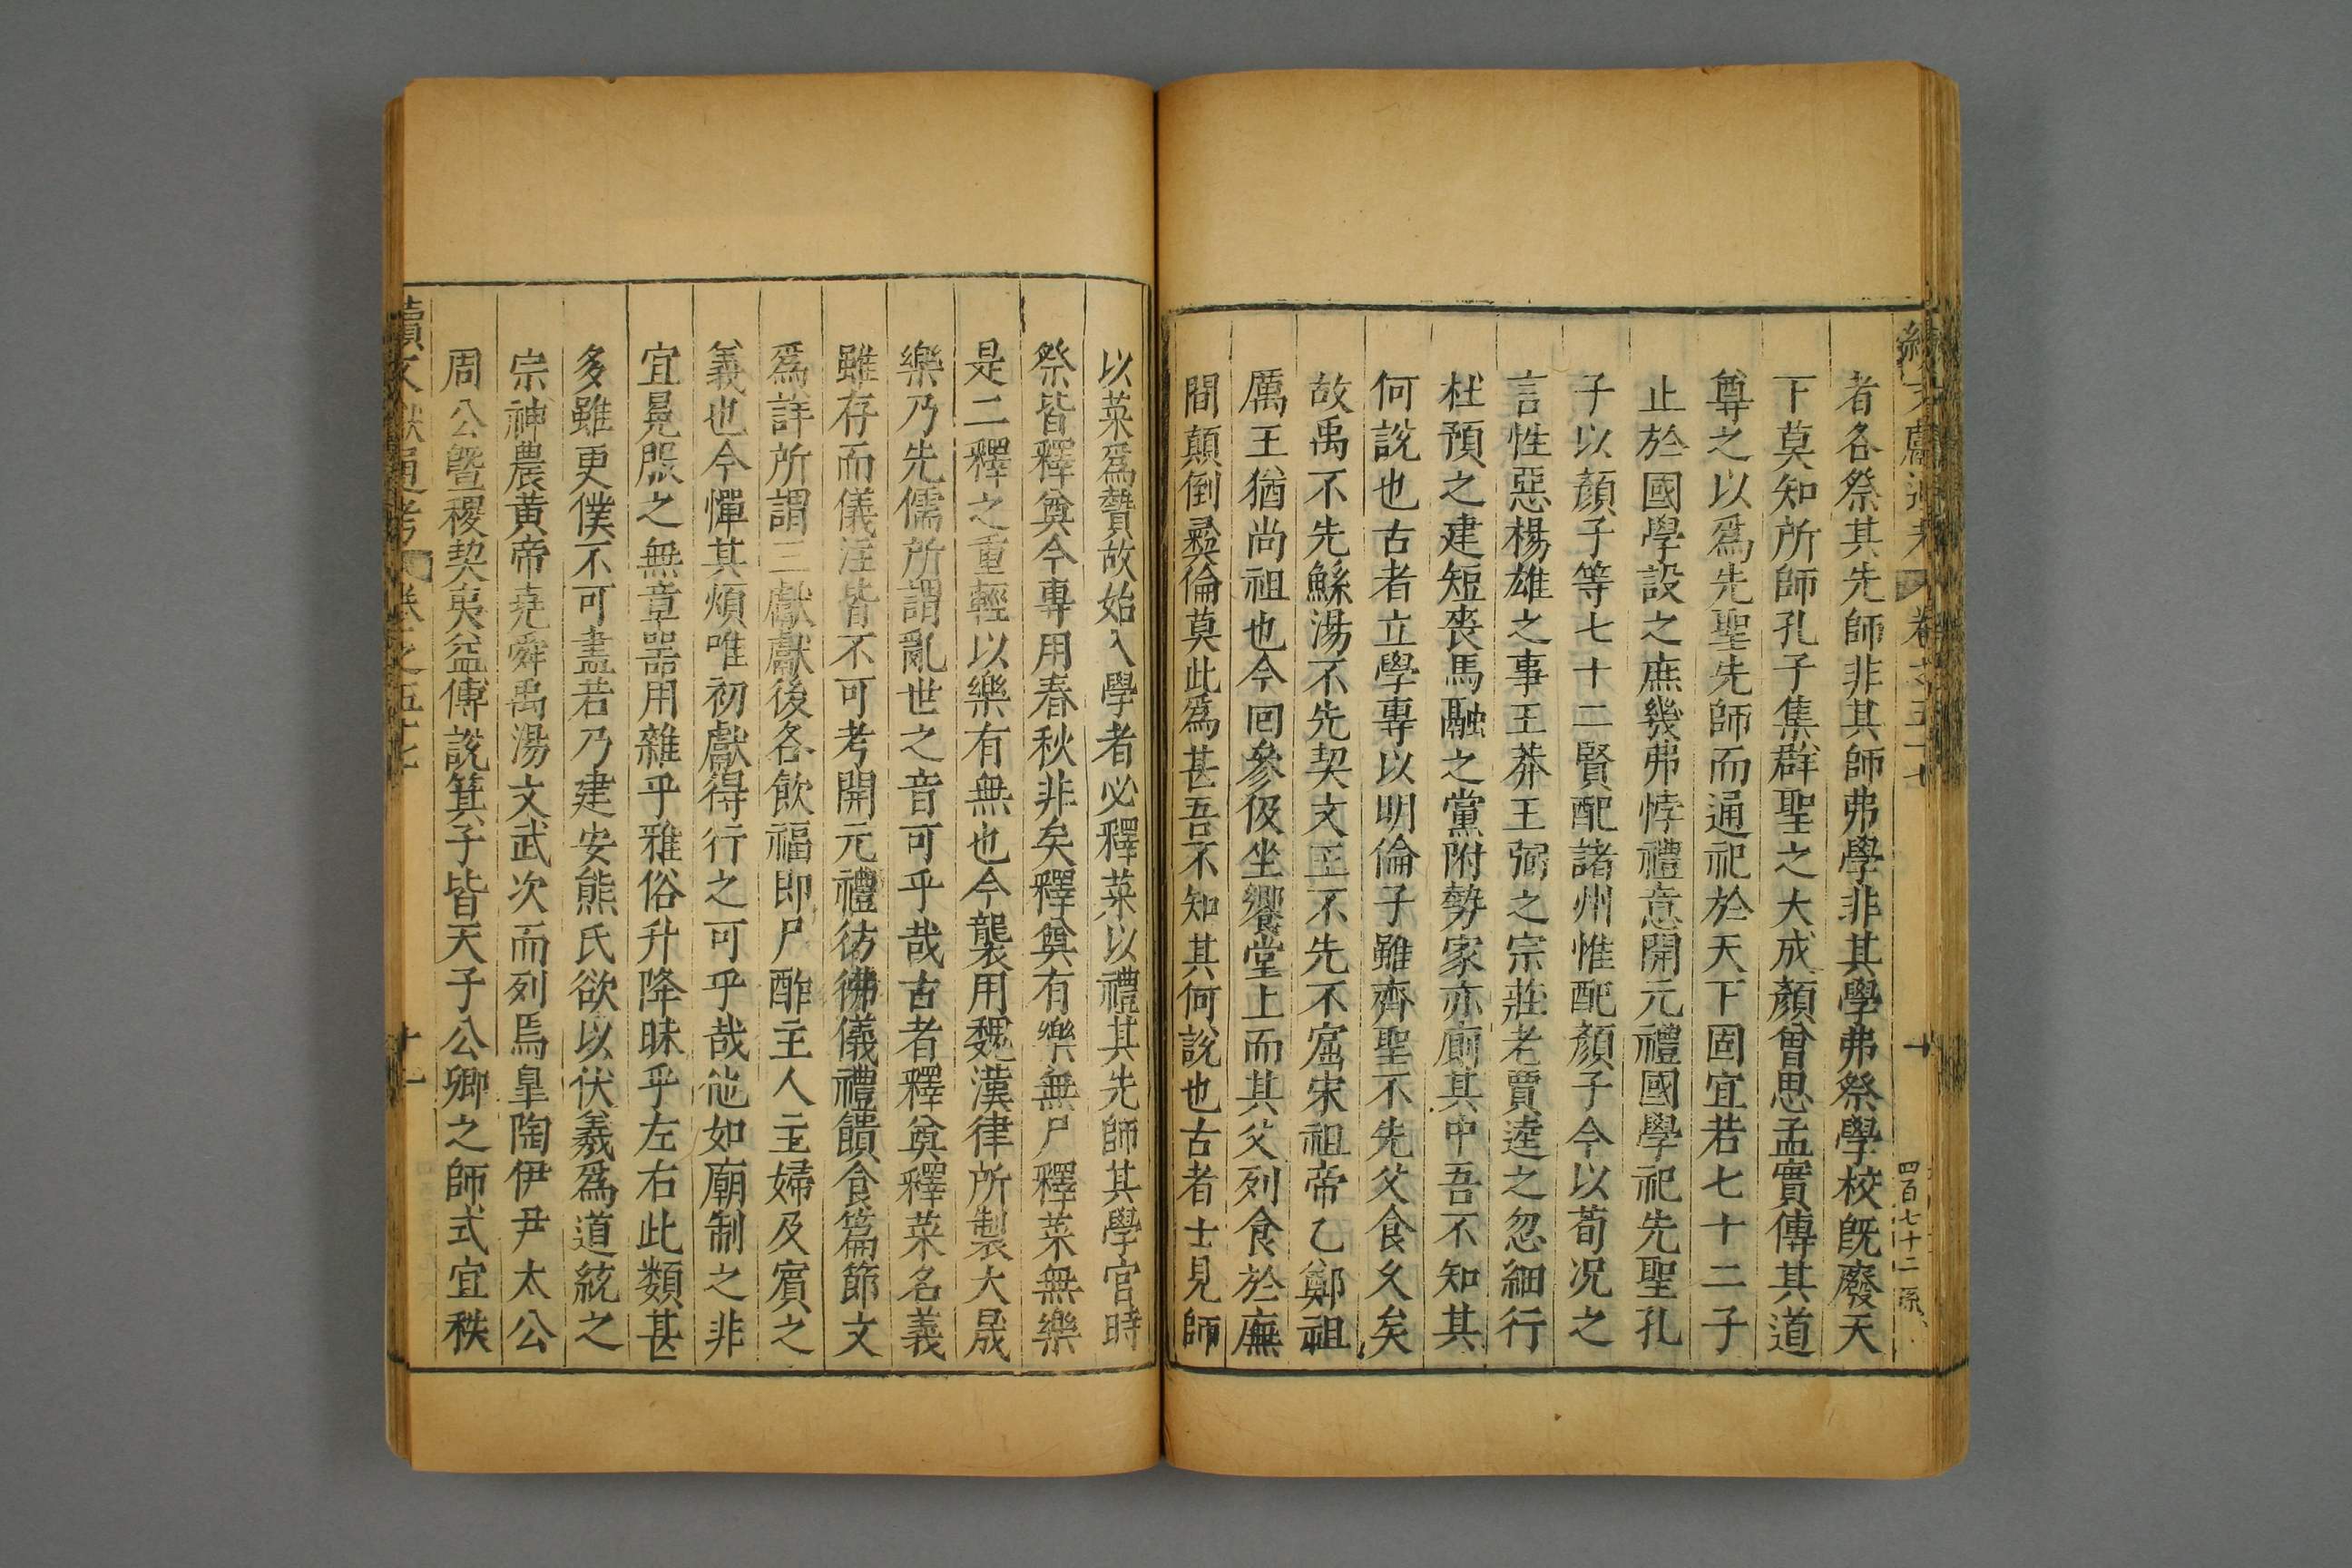 續文獻通考 卷之五十七 十 四百七十二 孫
者各祭其先師非其師弗學非其學弗祭學校既廢天
下莫知所師孔子集群聖之大成顏曾思孟實傳其道
尊之以爲先聖先師而通祀於天下固宜若七十二子
止於國學設之庶幾弗悖禮意開元禮國學祀先聖孔
子以顏子等七十二賢配諸州惟配顏子今以荀况之
言性惡楊雄之事王莽王弼之宗莊老賈逵之忽細行
杜預之建短喪馬融之黨附勢家亦廁其中吾不知其
何說也古者立學專以明倫子雖齊聖不先父食久矣
故禹不先鯀湯不先契文王不先不窋宋祖帝乙鄭祖
厲王猶尚祖也今回參伋坐饗堂上而其父列食於廡
間顛倒彛倫莫此爲甚吾不知其何說也古者士見師
以菜爲贄故始入學者必釋菜以禮其先師其學官時
祭皆釋奠今專用春秋非矣釋奠有樂無尸釋菜無樂
是二釋之重輕以樂有無也今襲用魏漢律所製大晟
樂乃先儒所謂亂世之音可乎哉古者釋奠釋菜名義
雖存而儀注皆不可考開元禮彷彿儀禮饋食篇節文
爲詳所謂三獻獻後各飲福即尸酢主人主婦及賓之
義也今憚其煩唯初獻得行之可乎哉他如廟制之非
宜冕服之無章器用雜乎雅俗升降昧乎左右此類甚
多雖更僕不可盡若乃建安熊氏欲以伏羲爲道統之
宗神農黃帝堯舜禹湯文武次而列焉臯陶伊尹太公
周公暨稷契夷益傅說箕子皆天子公卿之師式宜秩
續文獻通考 卷之五十七 十一